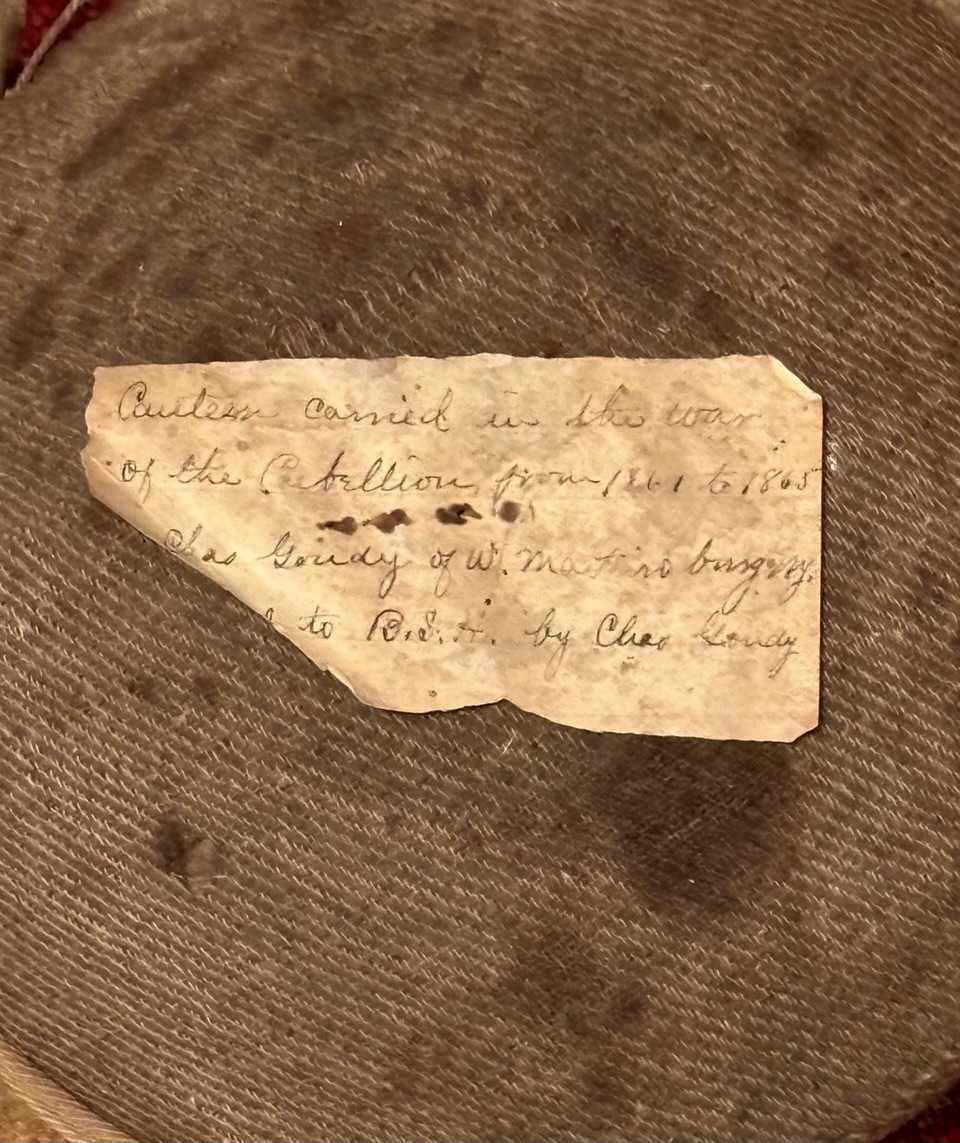 Canteen carried in the war
of the Rebellion from 1861 to 1865
Chas Goudy of W. Martinsburg N.Y.
to B.S.H. by Chas Goudy